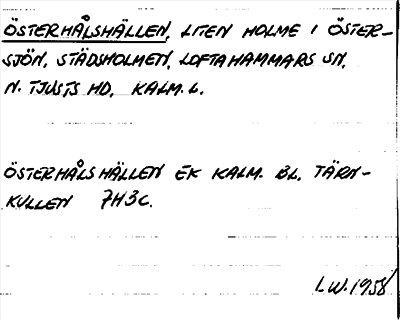 ÖSTERHÅLSHÄLLEN, LITEN HOLME I ÖSTER-
SJÖN, STÄDSHOLMEN, LOFTAHAMMARS SN,
N. TJUSTS HD, KALM. L.
ÖSTERHÅLSHÄLLEN EK KALM. BL. TÄRN-
KULLEN 7H3C.
I.W. 1958